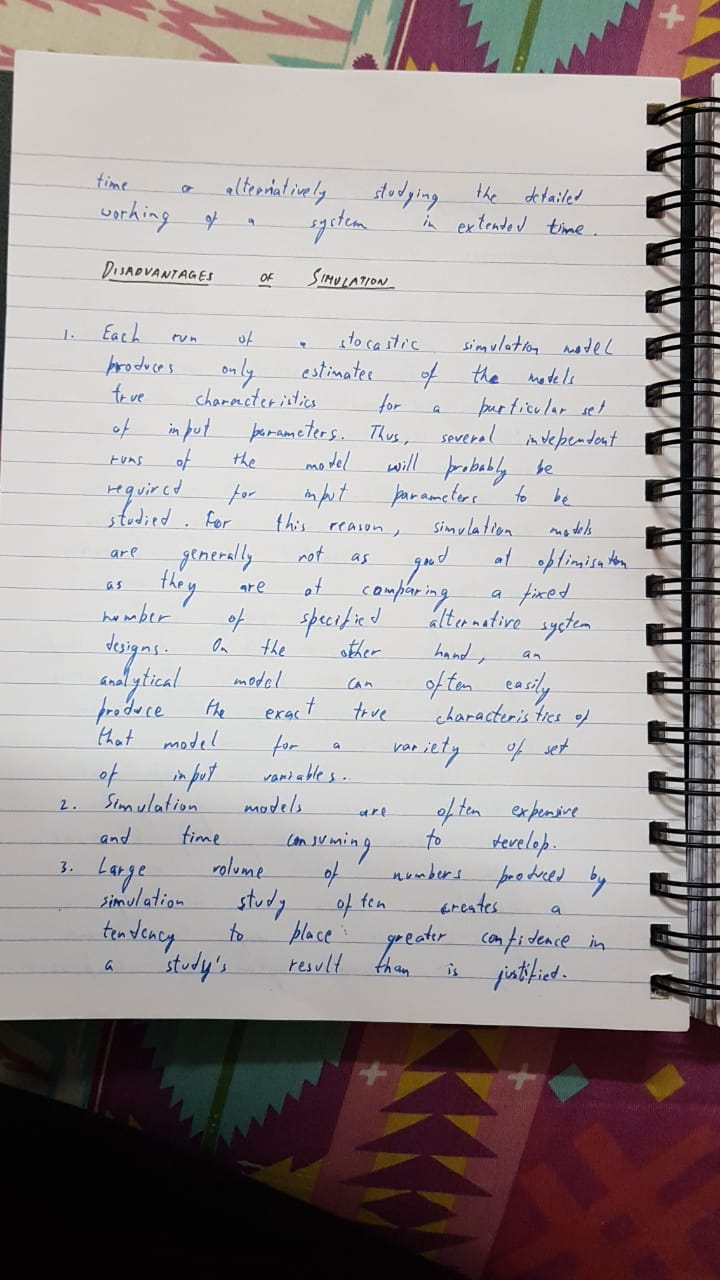 time or alternatively studying the detailed
working of a system in extended time.
DISADVANTAGES OF SIMULATION
1. Each run of a stocastic simulation model
produces only estimates of the models
true characteristics for a particular set
of input parameters. Thus, several independent
runs of the model will probably be
required for input parameters to be
studied. For this reason, simulation models
are generally not as good at optimisation
as they are at comparing a fixed
number of specified alternative system
designs. On the other hand, an
analytical model can often easily
produce the exact true characteristics of
that model for a variety of set
of input variables.
2. Simulation models are often expensive
and time consuming to develop.
3. Large volume of numbers produced by
simulation study often creates a
tendency to place greater confidence in
a study's result than is justified.